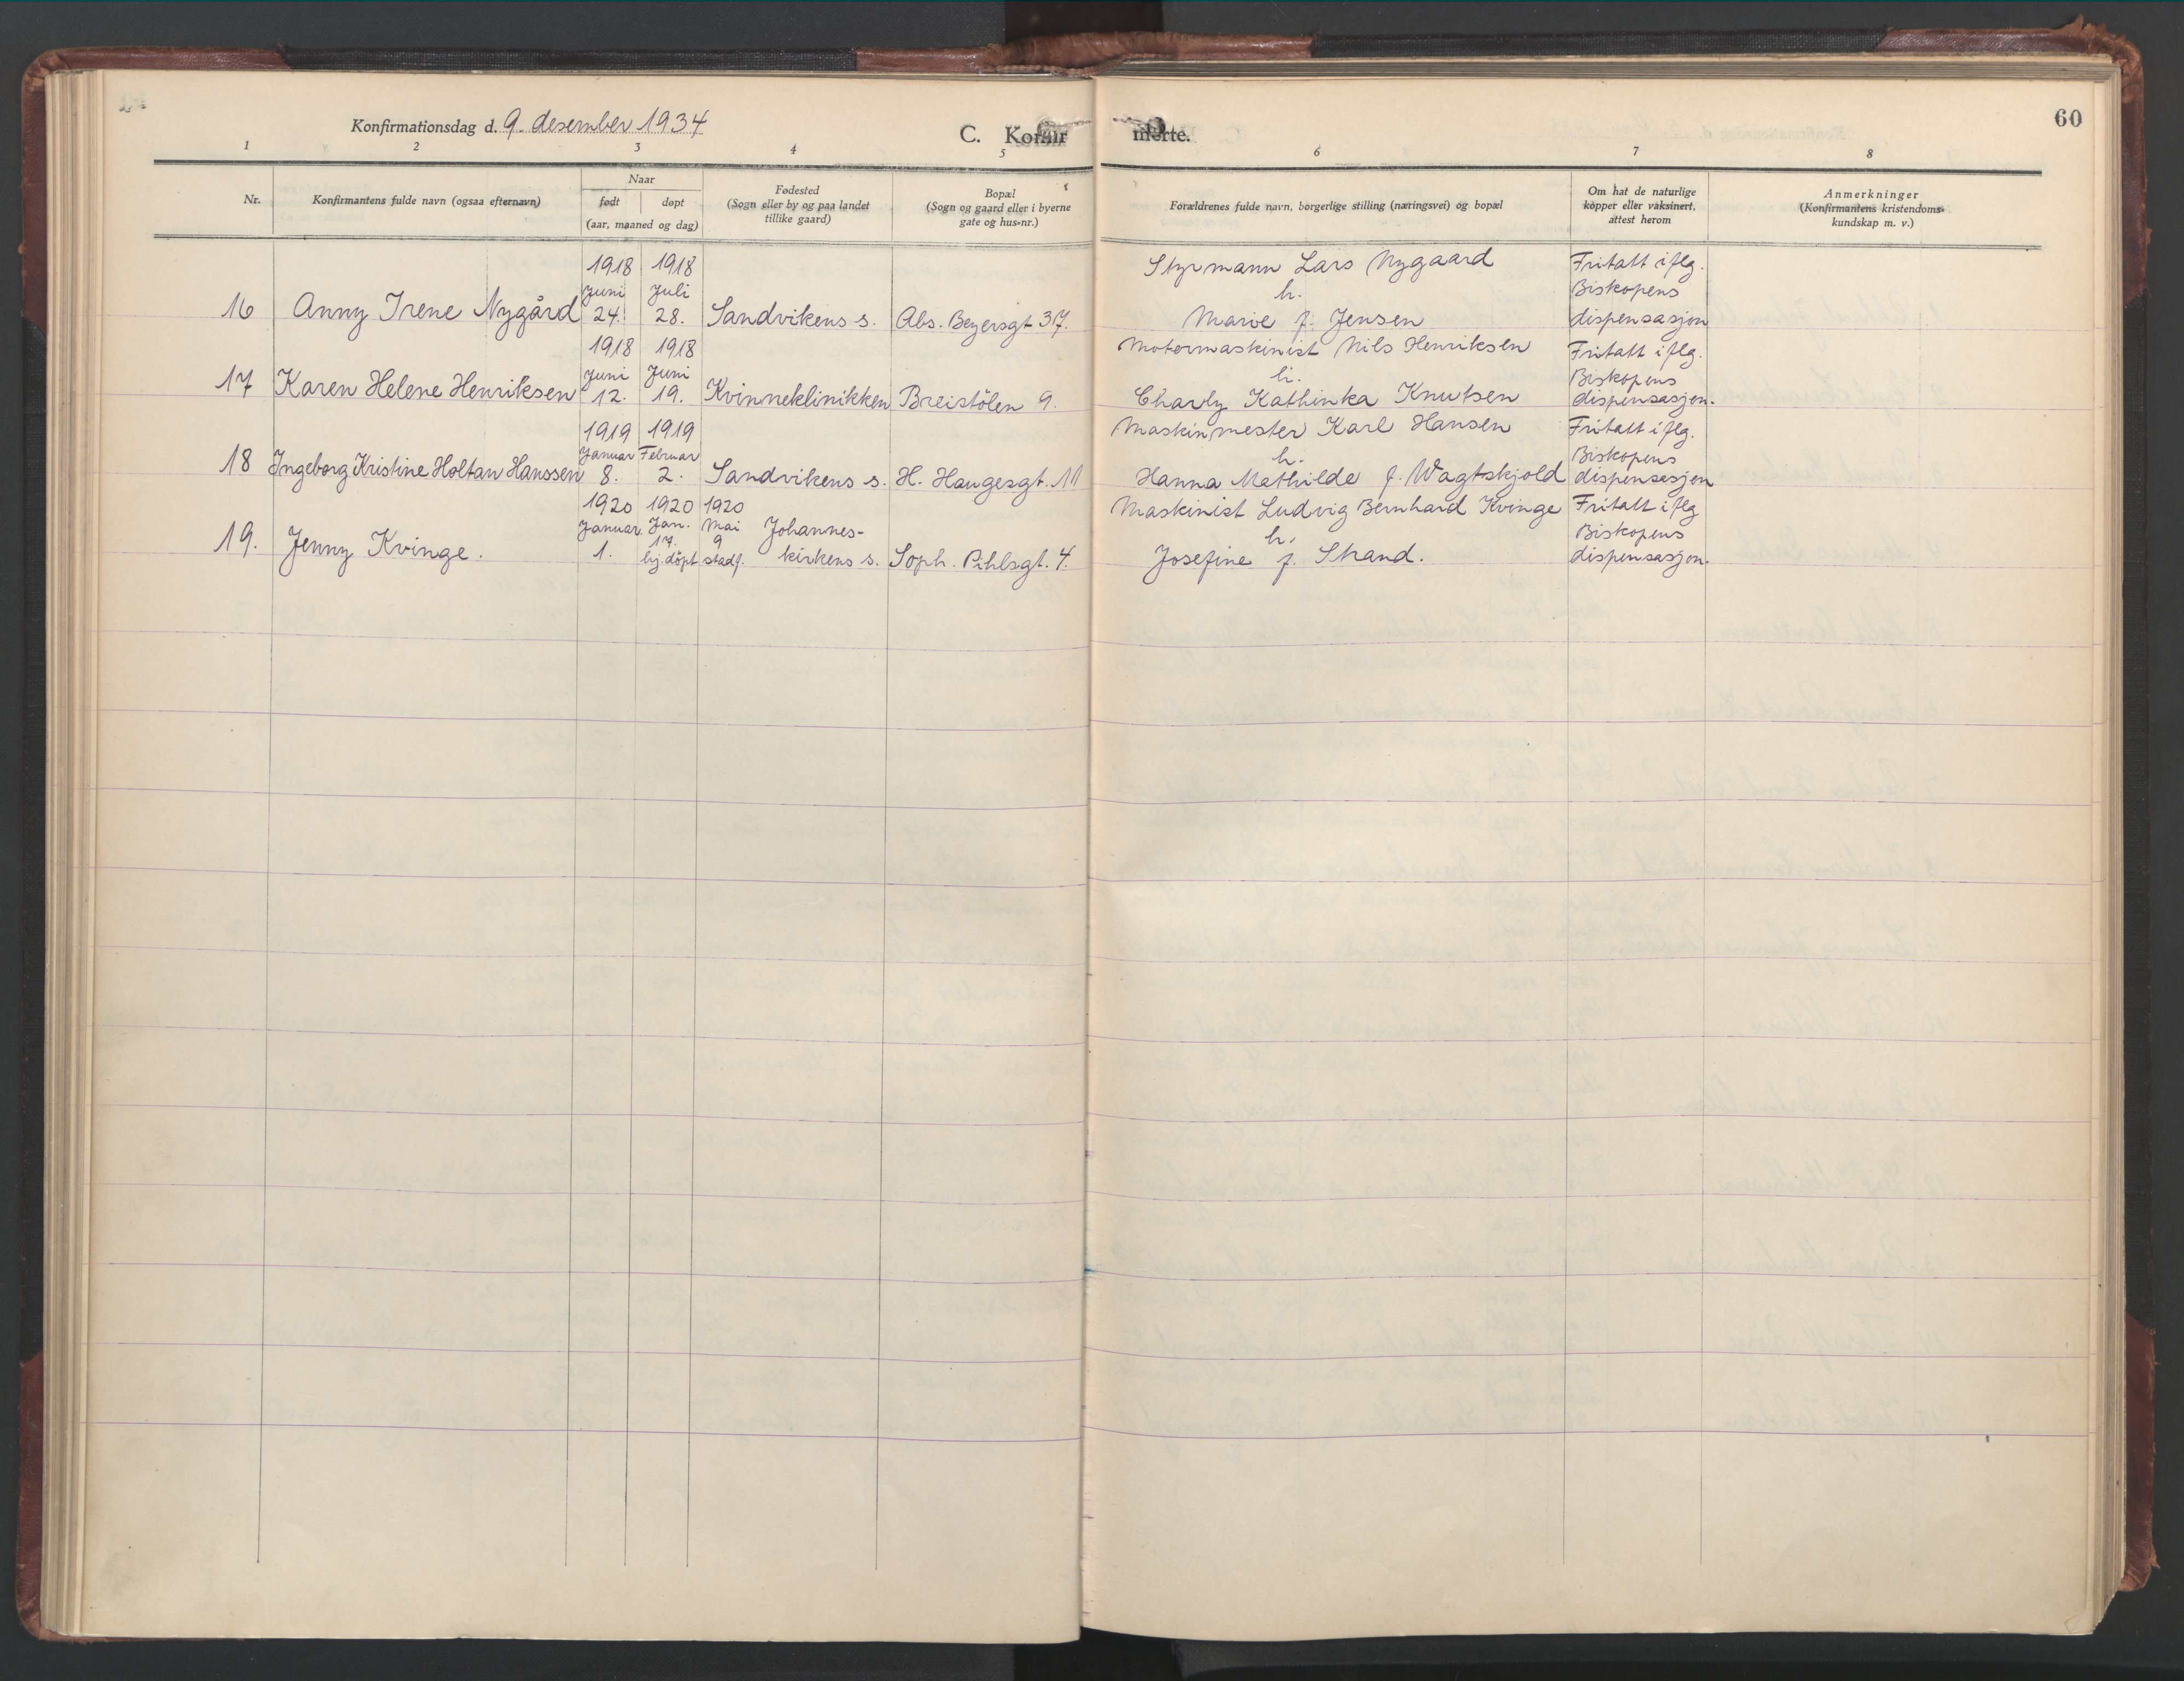 Konfirmationsdag d. 9. desember 1934
C. Konfirmerte.
60
1 2 3 4 5 6 7 8
Nr.
Konfirmantens fulde navn (ogsaa efternavn)
Naar
født døpt
(aar, maaned og dag)
Fødested
(Sogn eller by og paa landet
tillike gaard)
Bopæl
(Sogn og gaard eller i byerne
gate og hus-nr.)
Forældrenes fulde navn, borgerlige stilling (næringsvei) og bopæl
Om hat de naturlige
kopper eller vaksinert,
attest herom
Anmerkninger
(Konfirmantens kristendoms-
kundskap m. v.)
1918 1918 Styrmann Lars Nygaard Fritatt iflg.
Juni Juli h. Biskopens
16 Anny Irene Nygård 24. 28. Sandvikens s. Abs. Beyersgt 37. Marie f. Jensen dispensasjon
1918 1918 Motormaskinist Nils Henriksen Fritatt iflg.
Juni Juni h. Biskopens
17 Karen Helene Henriksen 12. 19. Kvinneklinikken Breistölen 9. Charly Kathinka Knutsen dispensasjon.
1919 1919 Maskinmester Karl Hansen Fritatt iflg.
Januar Februar h. Biskopens
18 Ingeborg Kristine Holtan Hanssen 8. 2. Sandvikens s. H. Haugesgt. 11 Hanna Mathilde f. Wagtskjold dispensasjon
1920 1920 1920 Maskinist Ludvig Bernhard Kvinge Fritatt iflg
Januar Jan. Mai Johannes- h. Biskopens
19. Jenny Kvinge. 1. 17. hj.döpt 9 stadf. kirkens s. Soph. Pihlsgt. 4. Josefine f. Strand. dispensasjon.